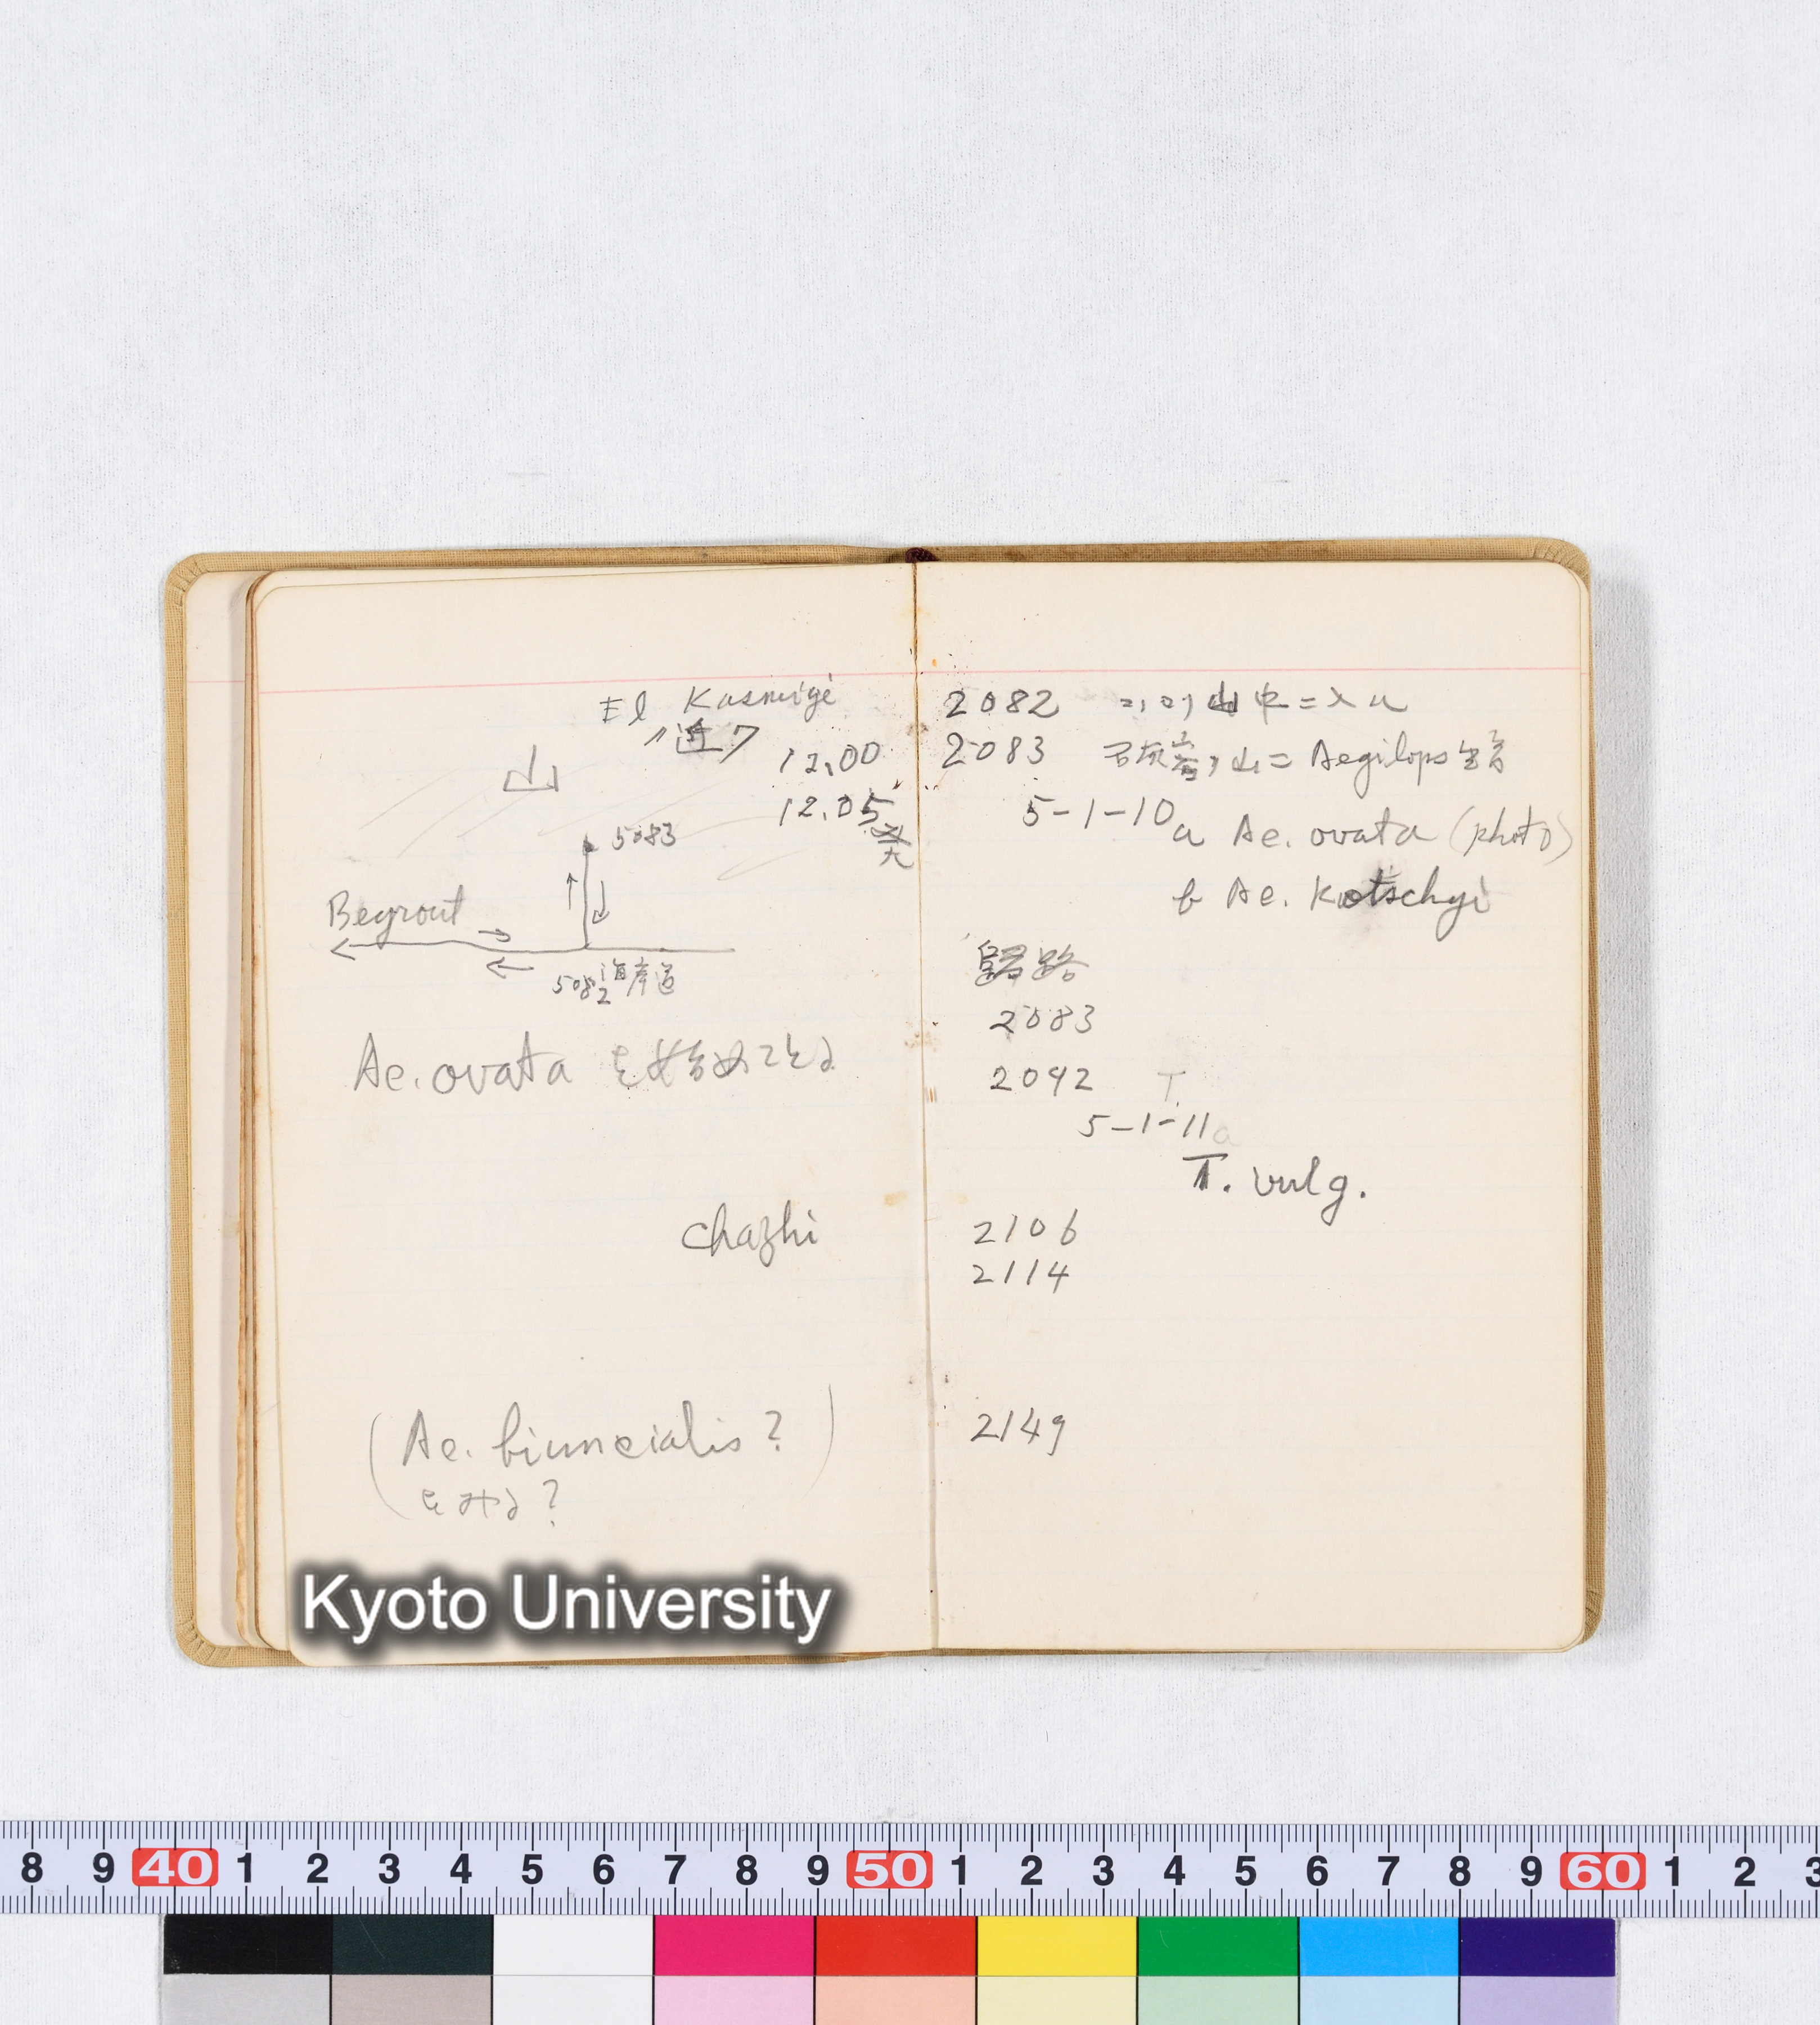 El Kasmigé
ノ近ク
12.00
12.05発
山
5083
Beyrout
5082 海岸道
Ae. ovata を始めてとる
chazhi
(Ae. biuncialis?)
をみる?
2082 ココヨリ山中ニ入ル
2083 石灰岩ノ山ニ Aegilops 多シ
5-1-10 a Ae. ovata (photo)
b Ae. Kotschyi
帰路
2083
2092 T.
5-1-11a
T. vulg.
2106
2114
2149
Kyoto University
8 9 40 1 2 3 4 5 6 7 8 9 50 1 2 3 4 5 6 7 8 9 60 1 2 3